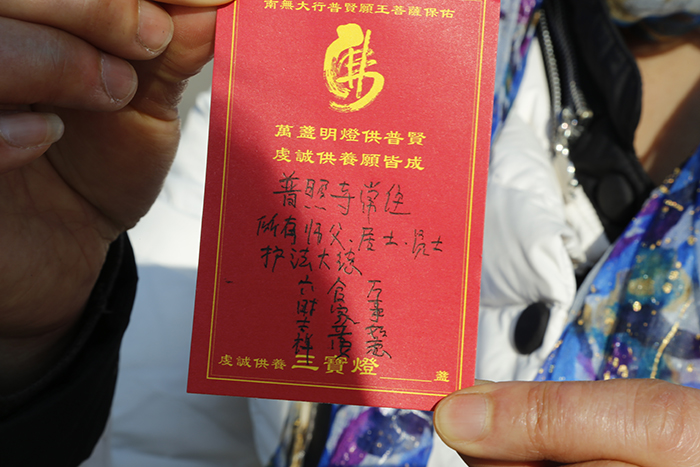 南無大行普賢願王菩薩保佑
佛
萬盞明燈供普賢
虔誠供養願皆成
普照寺常住
所有师父.居士.
护法大德
万事如意
合家
六时吉祥
虔誠供養 三寶燈____盞